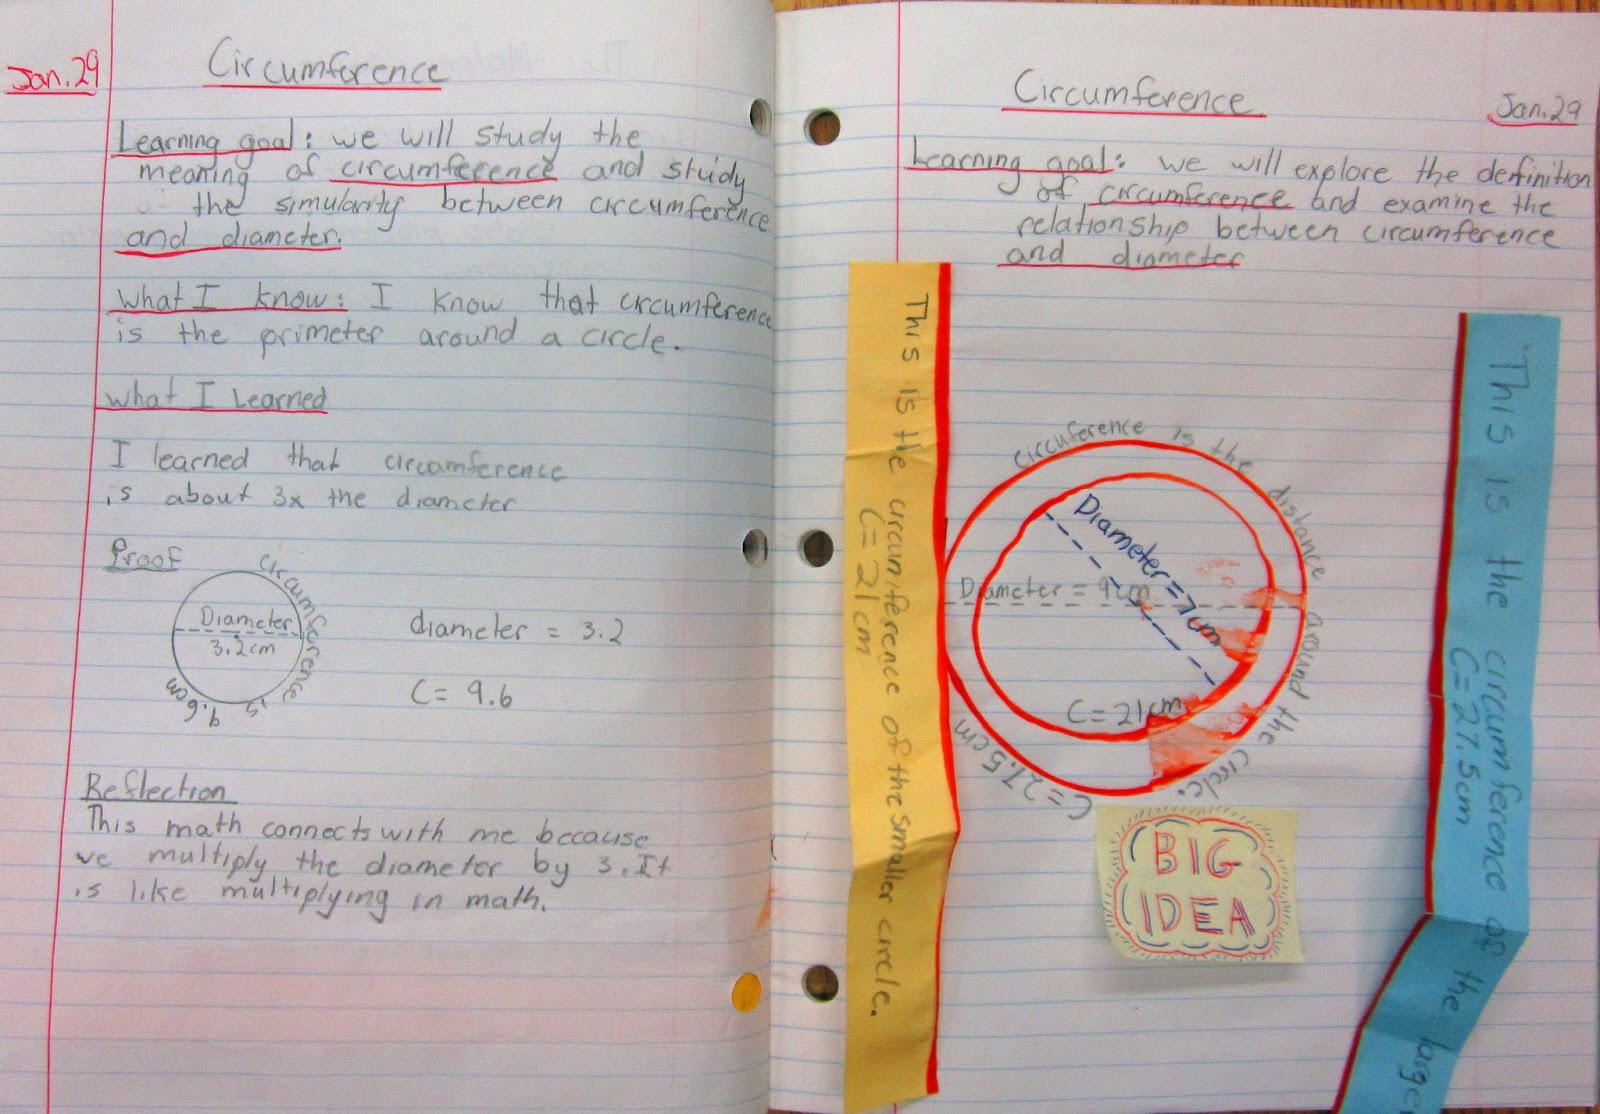 Jan.29
Circumference
Learning goal: we will study the
meaning of circumference and study
the simularity between circumference
and diameter.
What I know: I know that circumference
is the primeter around a circle.
What I Learned
I learned that circumference
is about 3x the diameter
Proof
Diameter
3.2cm
Circumference is 9.6cm
diameter = 3.2
C= 9.6
Reflection
This math connects with me because
we multiply the diameter by 3. It
is like multiplying in math.
Circumference
Jan.29
Learning goal: we will explore the definition
of circumference and examine the
relationship between circumference
and diameter
This is the circumference of the smaller circle.
C= 21cm
Circuference is the distance around the circle.
Diameter = 7cm
Diameter = 9cm
C= 21cm
C= 27.5cm
BIG
IDEA
This is the circumference of the large
C= 27.5cm